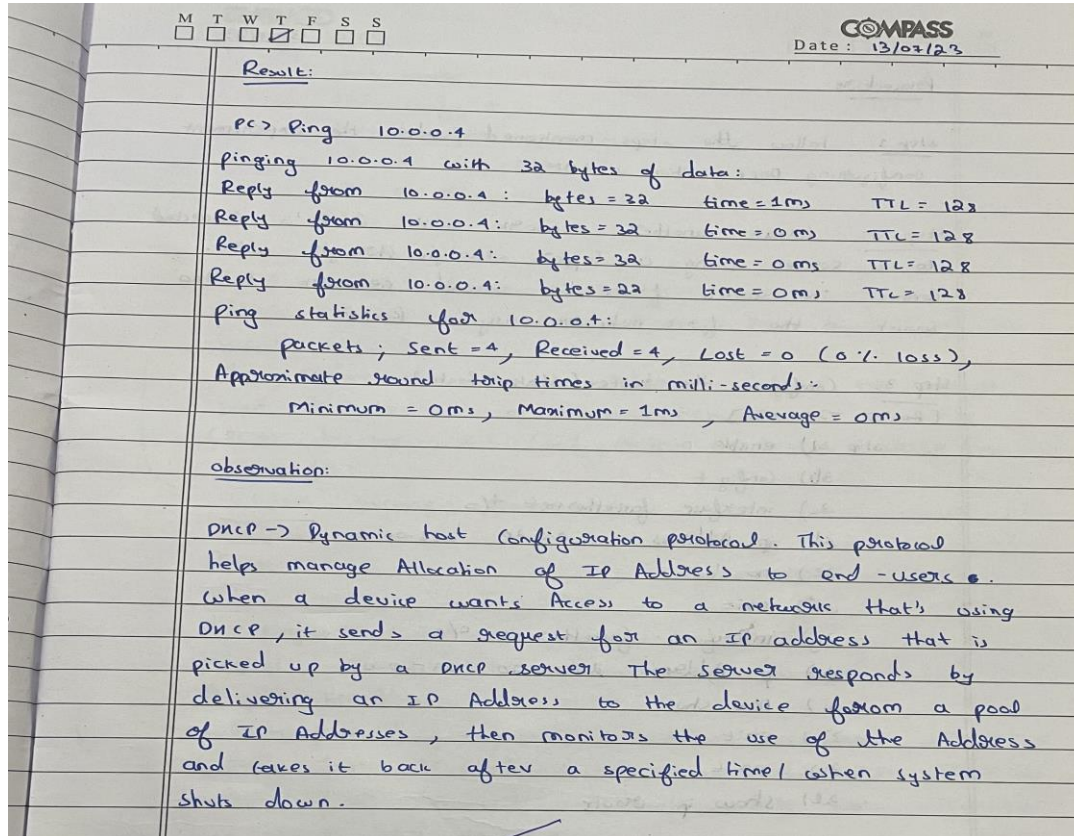 M T W T F S S
COMPASS
Date : 13/07/23
Result:
PC> Ping 10.0.0.4
pinging 10.0.0.4 with 32 bytes of data:
Reply from 10.0.0.4: bytes = 32 time = 1ms TTL = 128
Reply from 10.0.0.4: bytes = 32 time = 0ms TTL = 128
Reply from 10.0.0.4: bytes = 32 time = 0ms TTL = 128
Reply from 10.0.0.4: bytes = 22 time = 0ms TTL = 128
Ping statistics for 10.0.0.4:
packets; sent = 4, Received = 4, Lost = 0 (0% loss),
Approximate round trip times in milli-seconds:
Minimum = 0ms, Maximum = 1ms, Average = 0ms
observation:
DHCP -> Dynamic host Configuration protocol. This protocol
helps manage Allocation of IP Address to end-users.
when a device wants Access to a network that's using
DHCP, it sends a request for an IP address that is
picked up by a DHCP server The server responds by
delivering an IP Address to the device from a pool
of IP Addresses, then monitors the use of the Address
and takes it back after a specified time/ when system
shuts down.